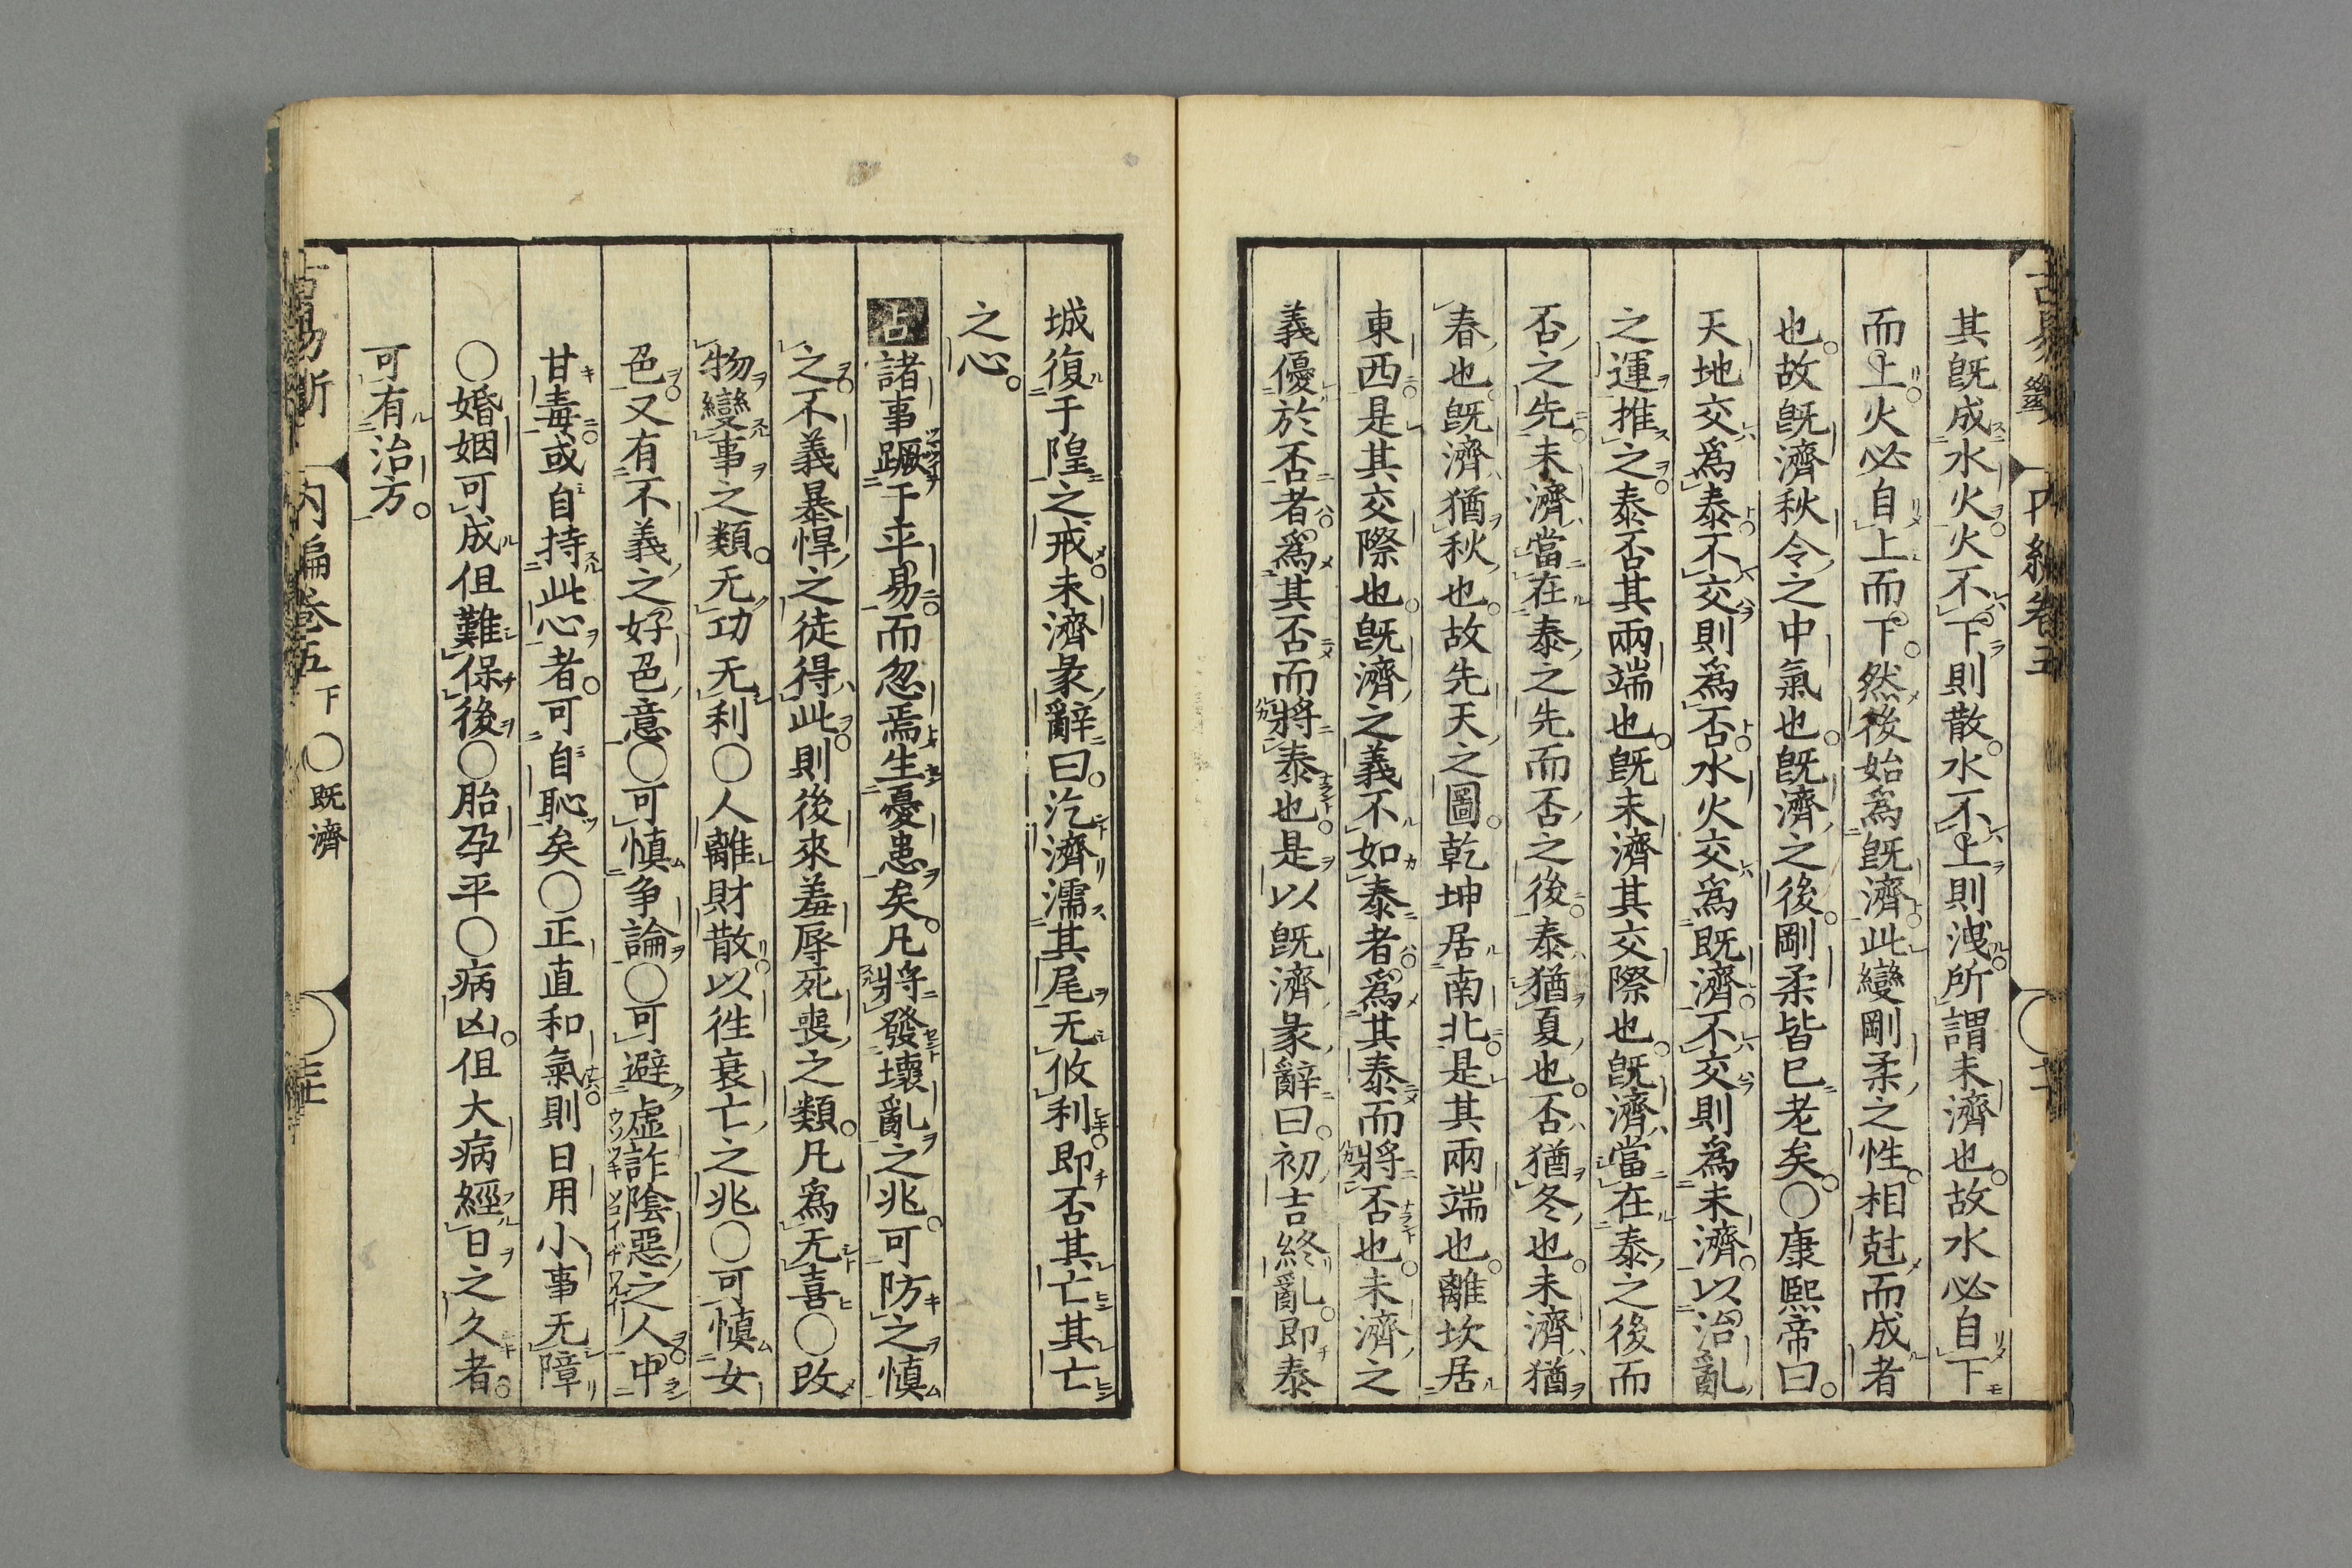 其既成水火火不下則散水不上則洩所謂未濟也故水必自下
而上火必自上而下然後始爲既濟此變剛柔之性相尅而成者
也故既濟秋令之中氣也既濟之後剛柔皆已老矣○康熙帝曰
天地交爲泰不交則爲否水火交爲既濟不交則爲未濟以治亂
之運推之泰否其兩端也既未濟其交際也既濟當在泰之後而
否之先未濟當在泰之先而否之後泰猶夏也否猶冬也未濟猶
春也既濟猶秋也故先天之圖乾坤居南北是其兩端也離坎居
東西是其交際也既濟之義不如泰者爲其泰而將否也未濟之
義優於否者爲其否而將泰也是以既濟彖辭曰初吉終亂即泰
城復于隍之戒未濟彖辭曰汔濟濡其尾无攸利即否其亡其亡
之心
占諸事蹶于平易而忽焉生憂患矣凡將發壞亂之兆可防之愼
之不義暴悍之徒得此則後來羞辱死喪之類凡爲无喜○改
物變事之類无功无利○人離財散以徃衰亡之兆○可愼女
色又有不義之好色意○可愼爭論○可避虛詐陰惡之人中
ウソツキ ソコイヂワルイ
甘毒或自持此心者可自恥矣○正直和氣則日用小事无障
○婚姻可成但難保後○胎孕平○病凶但大病經日之久者
可有治方
古易斷 内編卷五 下 ○既濟